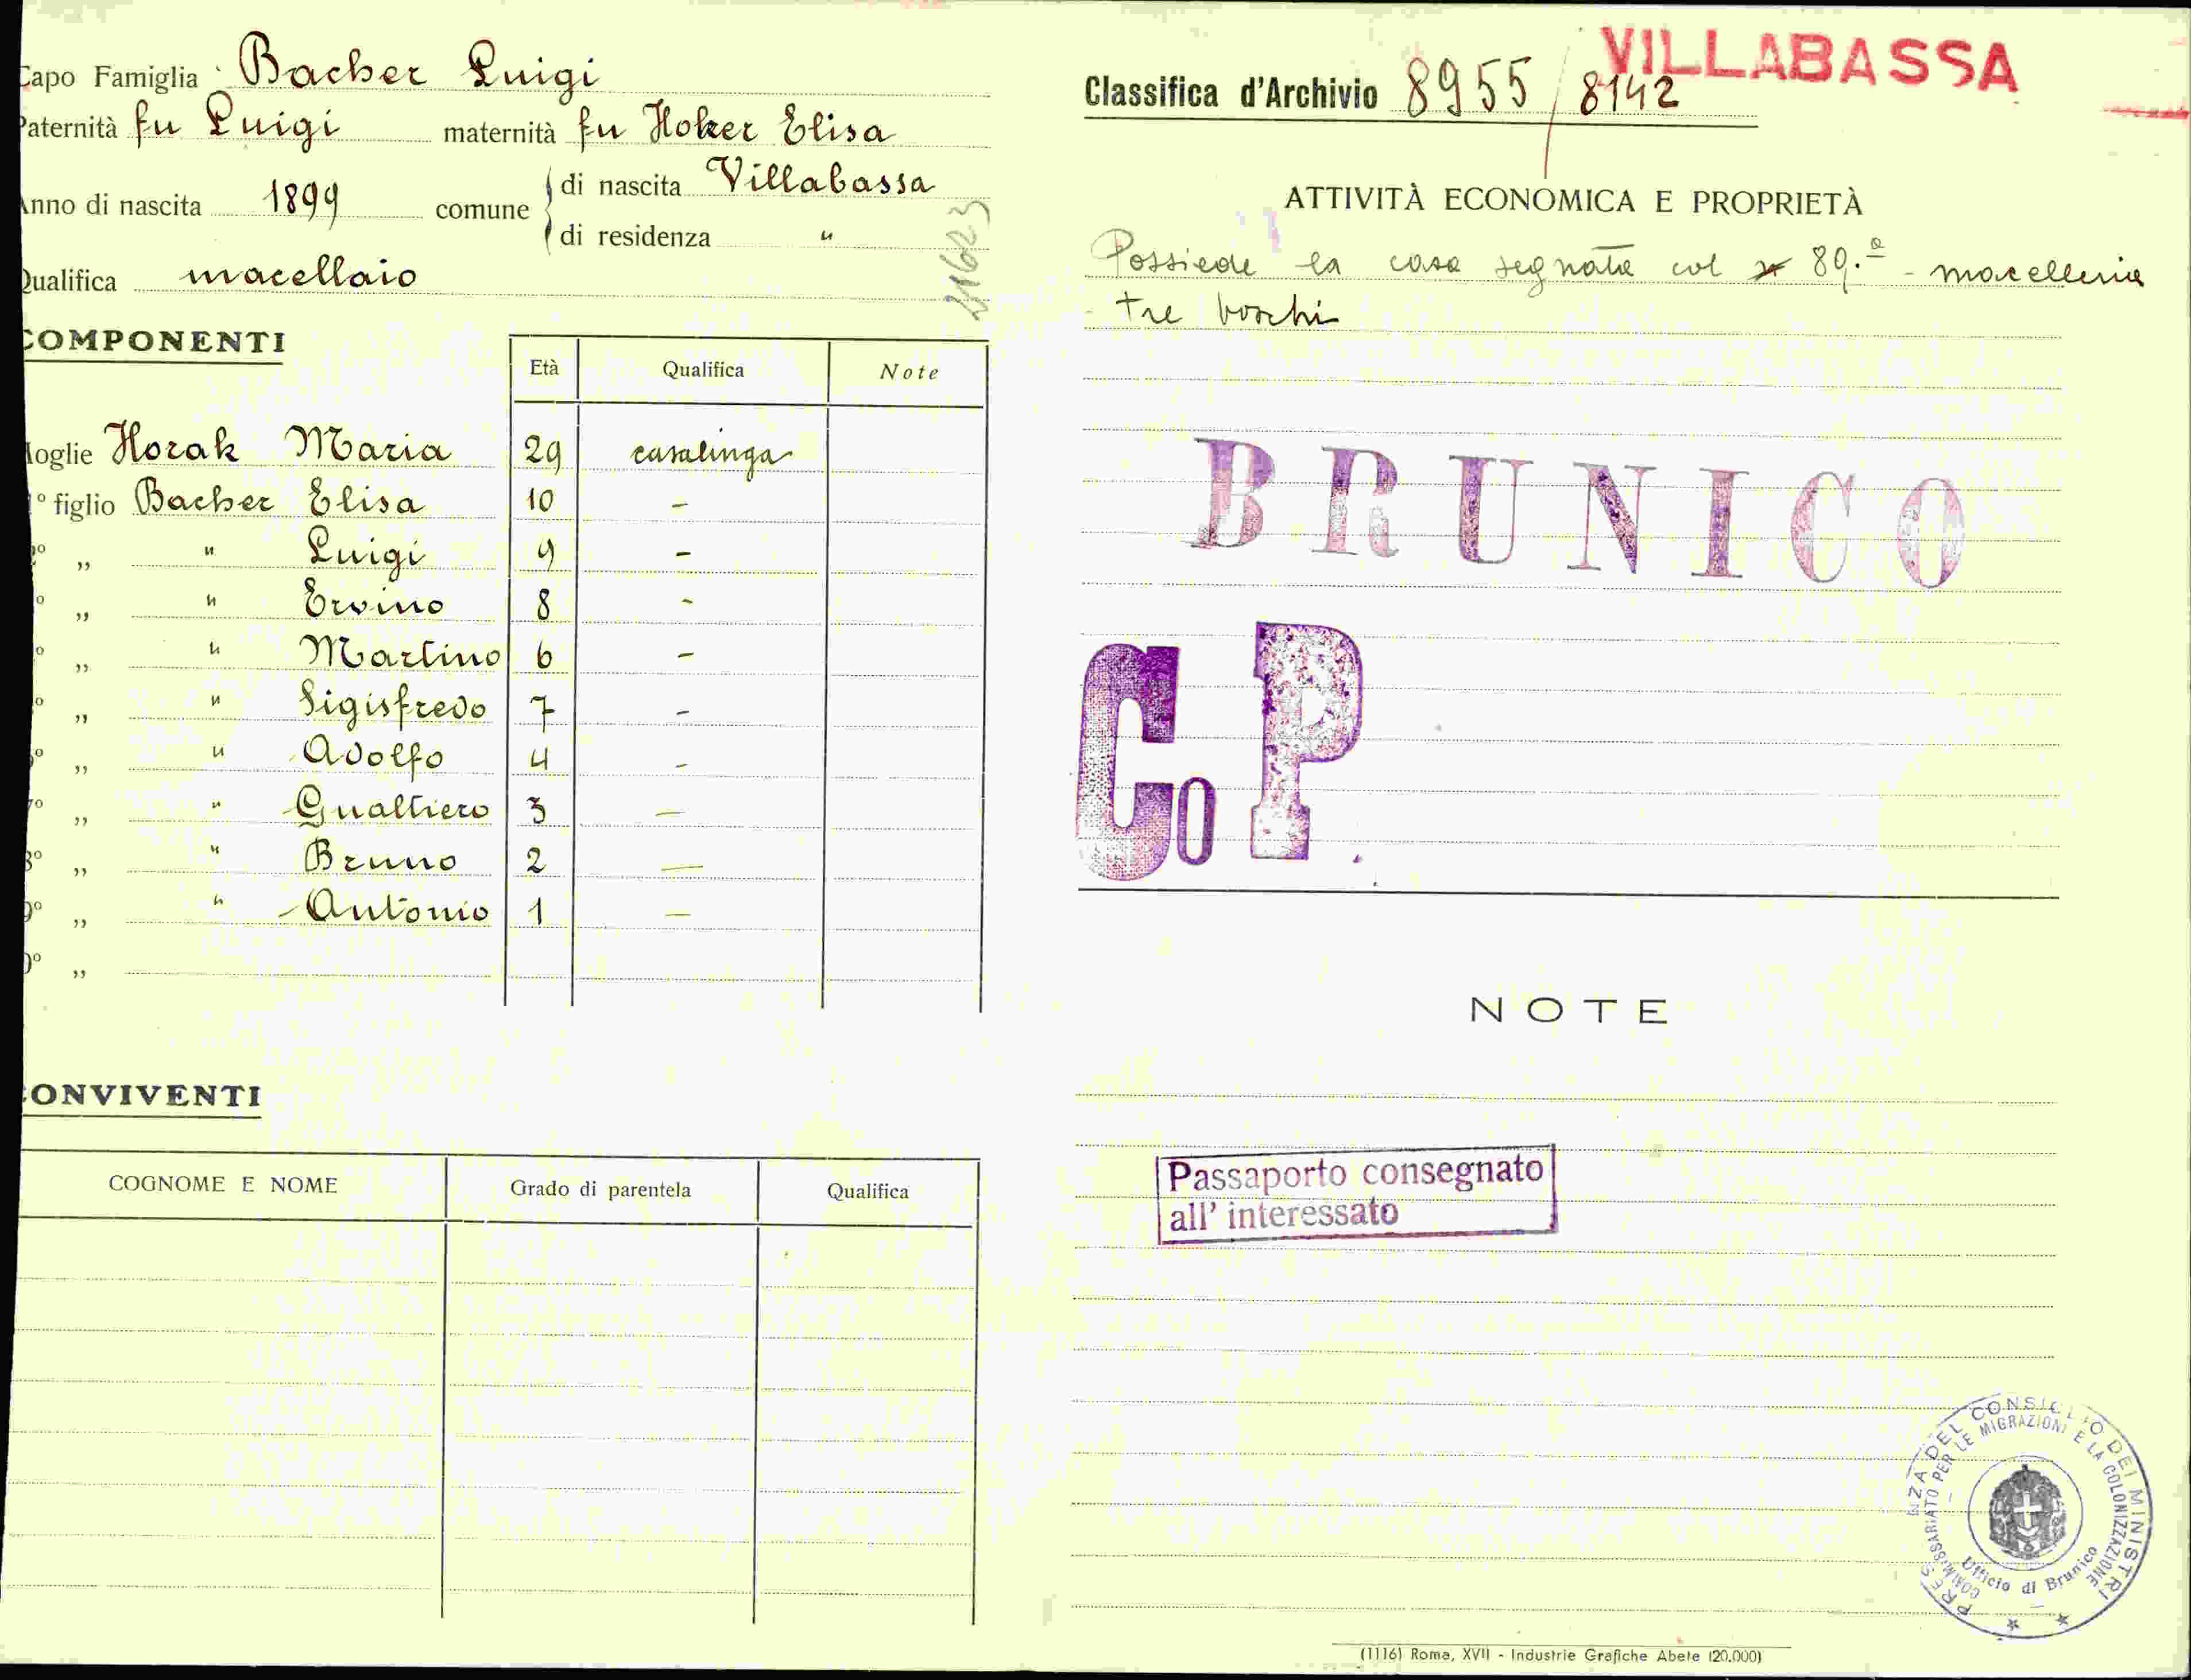 Capo Famiglia Bacher Luigi
Paternità fu Luigi maternità fu Hoker Elisa
Anno di nascita 1899 comune di nascita Villabassa
di residenza "
Qualifica macellaio
21623
COMPONENTI
Età Qualifica Note
Moglie Horak Maria 29 casalinga
1º figlio Bacher Elisa 10 -
2º „ " Luigi 9 -
º „ " Ervino 8 -
º „ " Martino 6 -
º „ " Sigisfredo 7 -
º „ " Adolfo 4 -
7º „ " Gualtiero 3 -
8º „ " Bruno 2 -
9º „ " Antonio 1 -
0º „
CONVIVENTI
COGNOME E NOME Grado di parentela Qualifica
VILLABASSA
Classifica d'Archivio 8955 / 8142
ATTIVITÀ ECONOMICA E PROPRIETÀ
Possiede la casa segnata col 89.º - macelleria
- tre boschi
BRUNICO
Co P.
NOTE
Passaporto consegnato
all' interessato
PRES ENZA DEL CONSIGLIO DEI MINISTRI
COMMISSARIATO PER LE MIGRAZIONI E LA COLONIZZAZIONE
Ufficio di Brunico
(1116) Roma, XVII - Industrie Grafiche Abete (20.000)